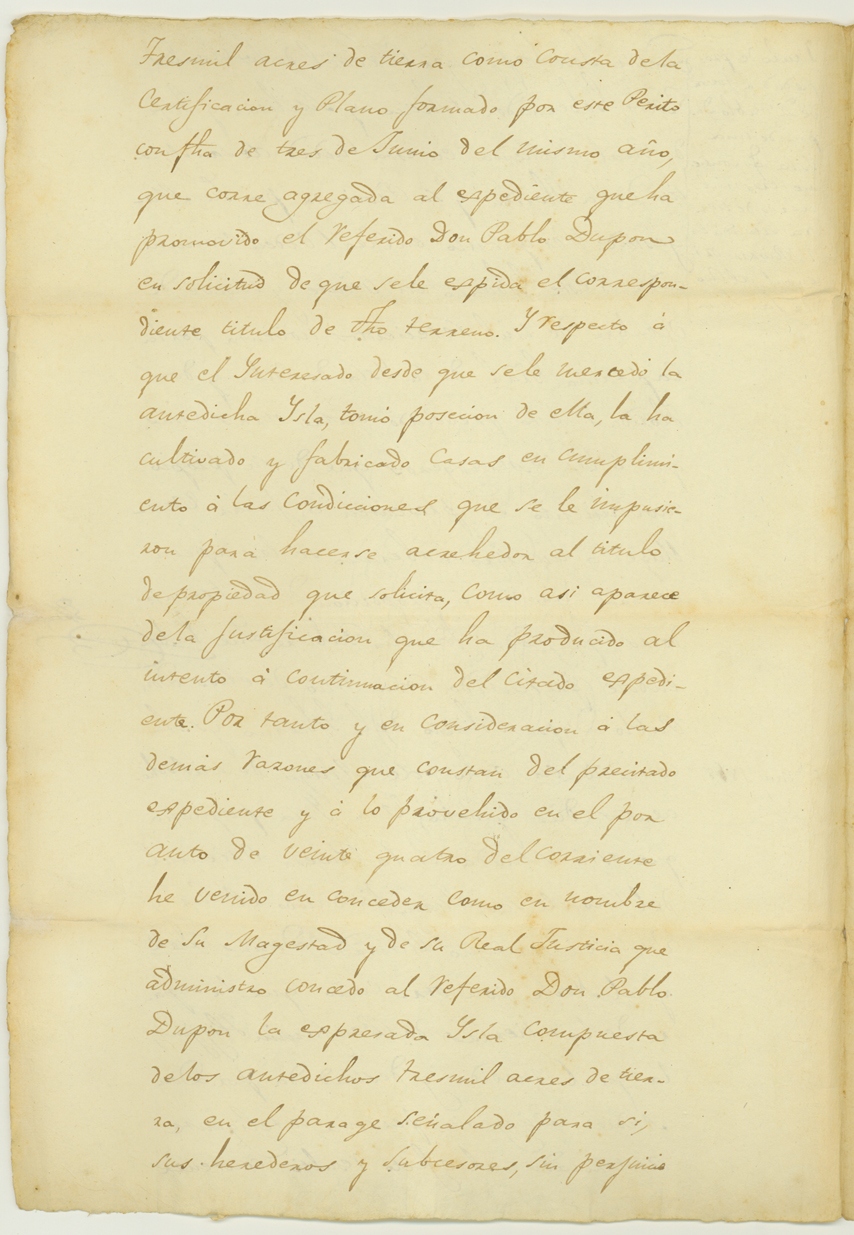 Tresmil acres de tierra como consta dela
Certificacion y Plano formado por este Perito
con fha de tres de Junio del mismo año,
que corre agregada al expediente que ha
promovido el referido Don Pablo Dupon
en solicitud de que sele expida el correspon-
diente titulo de dho terreno. Y respecto à
que el Interesado desde que sele mercedó la
antedicha Ysla, tomó posecion de ella, la ha
cultivado y fabricado Casas en cumplimi-
ento à las Condiciones que se le impusie-
ron para hacerse acrehedor al titulo
de propiedad que solicita, como asi aparece
dela justificacion que ha producido al
intento à continuacion del Citado expedi-
ente. Por tanto y en consideracion à las
demas razones que constan del precitado
expediente y à lo provehido en el por
auto de veinte quatro del corriente
he venido en conceder como en nombre
de Su Magestad y de su Real Justicia que
administro concedo al referido Don Pablo
Dupon la expresada Ysla compuesta
delos antedichos tresmil acres de tier-
ra, en el parage señalado para si,
sus herederos y subcesores, sin perjuicio